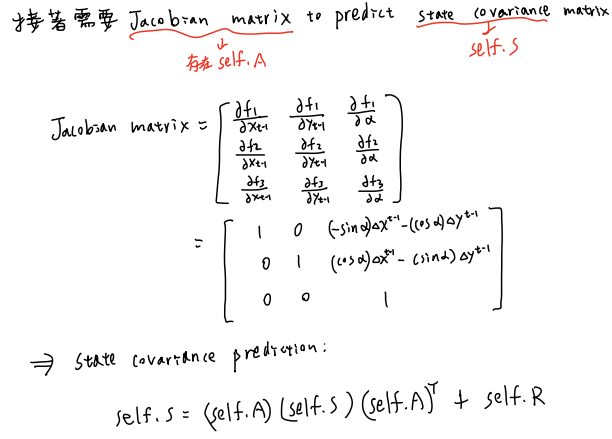 接著需要 Jacobian matrix to predict state covariance matrix
存在 self.A
self.S
Jacobian matrix = [ ∂f₁/∂x_{t-1} ∂f₁/∂y_{t-1} ∂f₁/∂α
∂f₂/∂x_{t-1} ∂f₂/∂y_{t-1} ∂f₂/∂α
∂f₃/∂x_{t-1} ∂f₃/∂y_{t-1} ∂f₃/∂α ]
= [ 1 0 (-sinα)Δx^{t-1} - (cosα)Δy^{t-1}
0 1 (cosα)Δx^{t-1} - (sinα)Δy^{t-1}
0 0 1 ]
⇒ state covariance prediction:
self.S = (self.A)(self.S)(self.A)^T + self.R